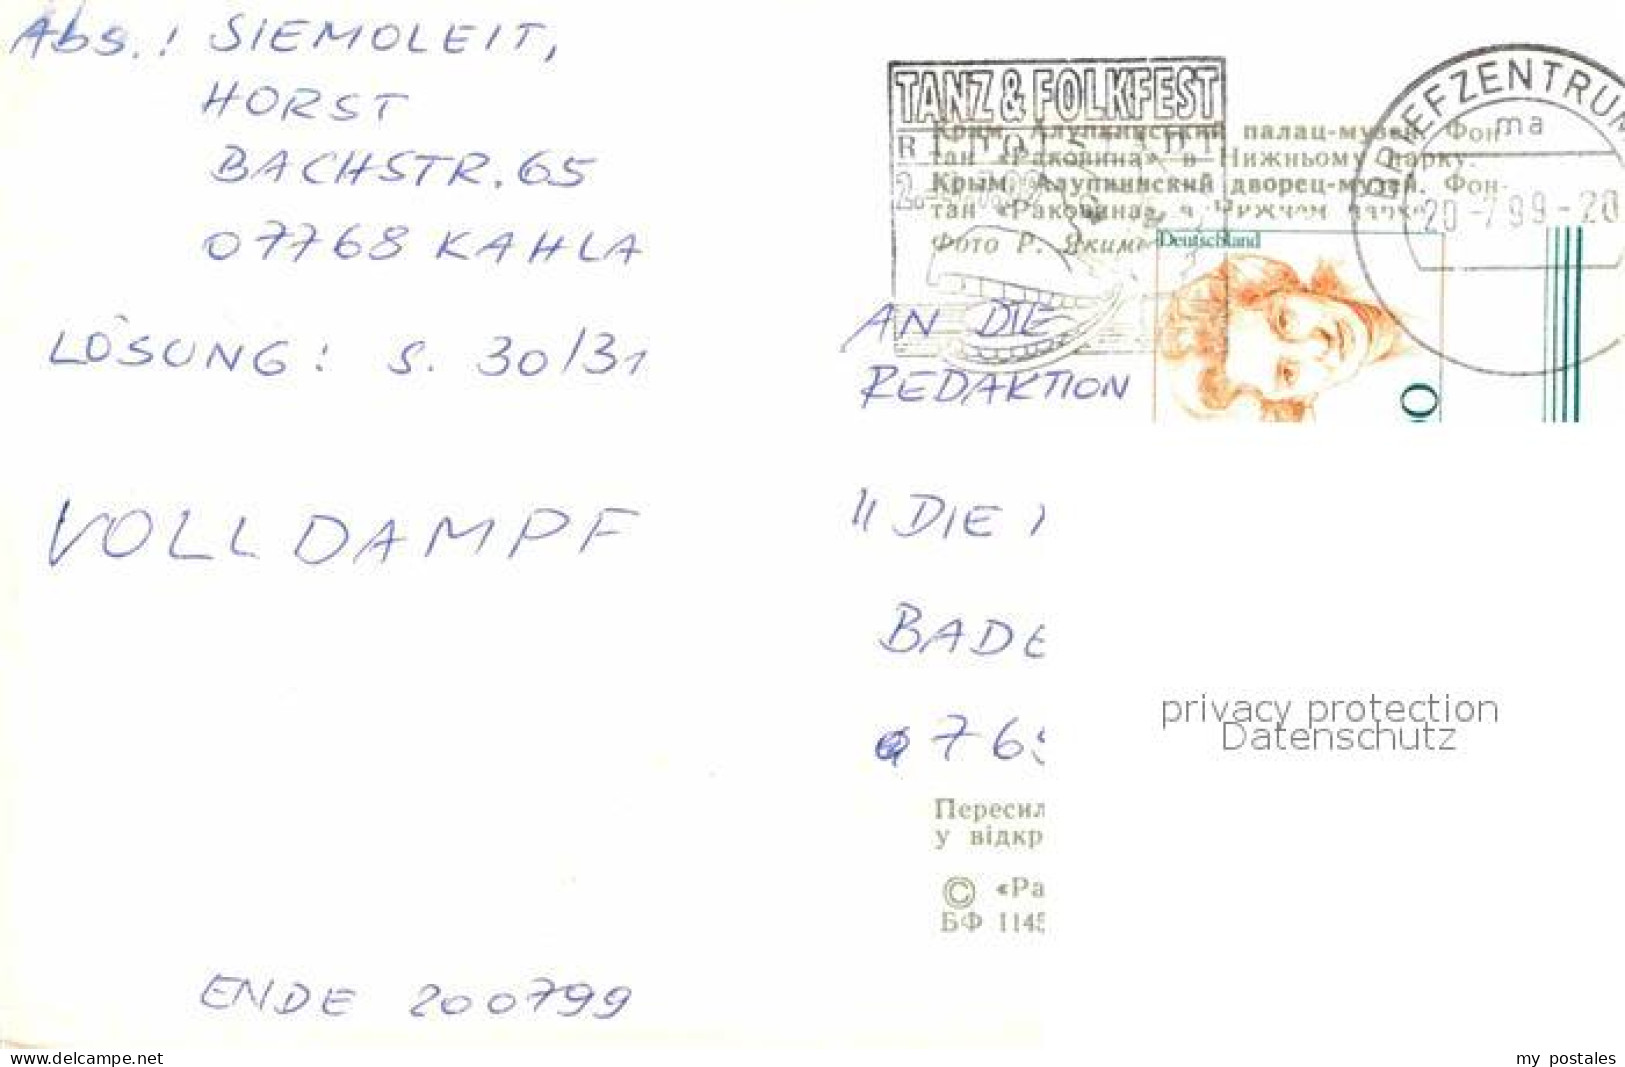 Abs.! SIEMOLEIT,
HORST
BACHSTR. 65
07768 KAHLA
LÖSUNG! S. 30/31
VOLLDAMPF
ENDE 200799
TANZ & FOLKFEST
BRIEFZENTRUM
ma
20-7 99-20
Крим. Алупкинський палац-музей. Фон-
тан «Раковина» в Нижньому парку.
Крым. Алупкинский дворец-музей. Фон-
тан «Раковина» в Нижнем парке
Фото Р. Якиме
Deutschland
0
AN DIE
REDAKTION
" DIE
BADE
76
Пересил
у відкр
© «Ра
БФ 1145
privacy protection
Datenschutz
www.delcampe.net
my_postales